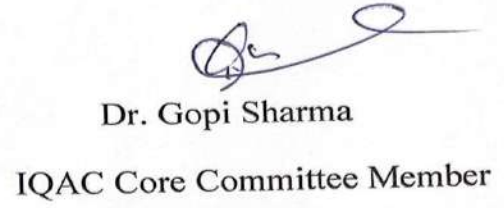 Dr. Gopi Sharma
IQAC Core Committee Member